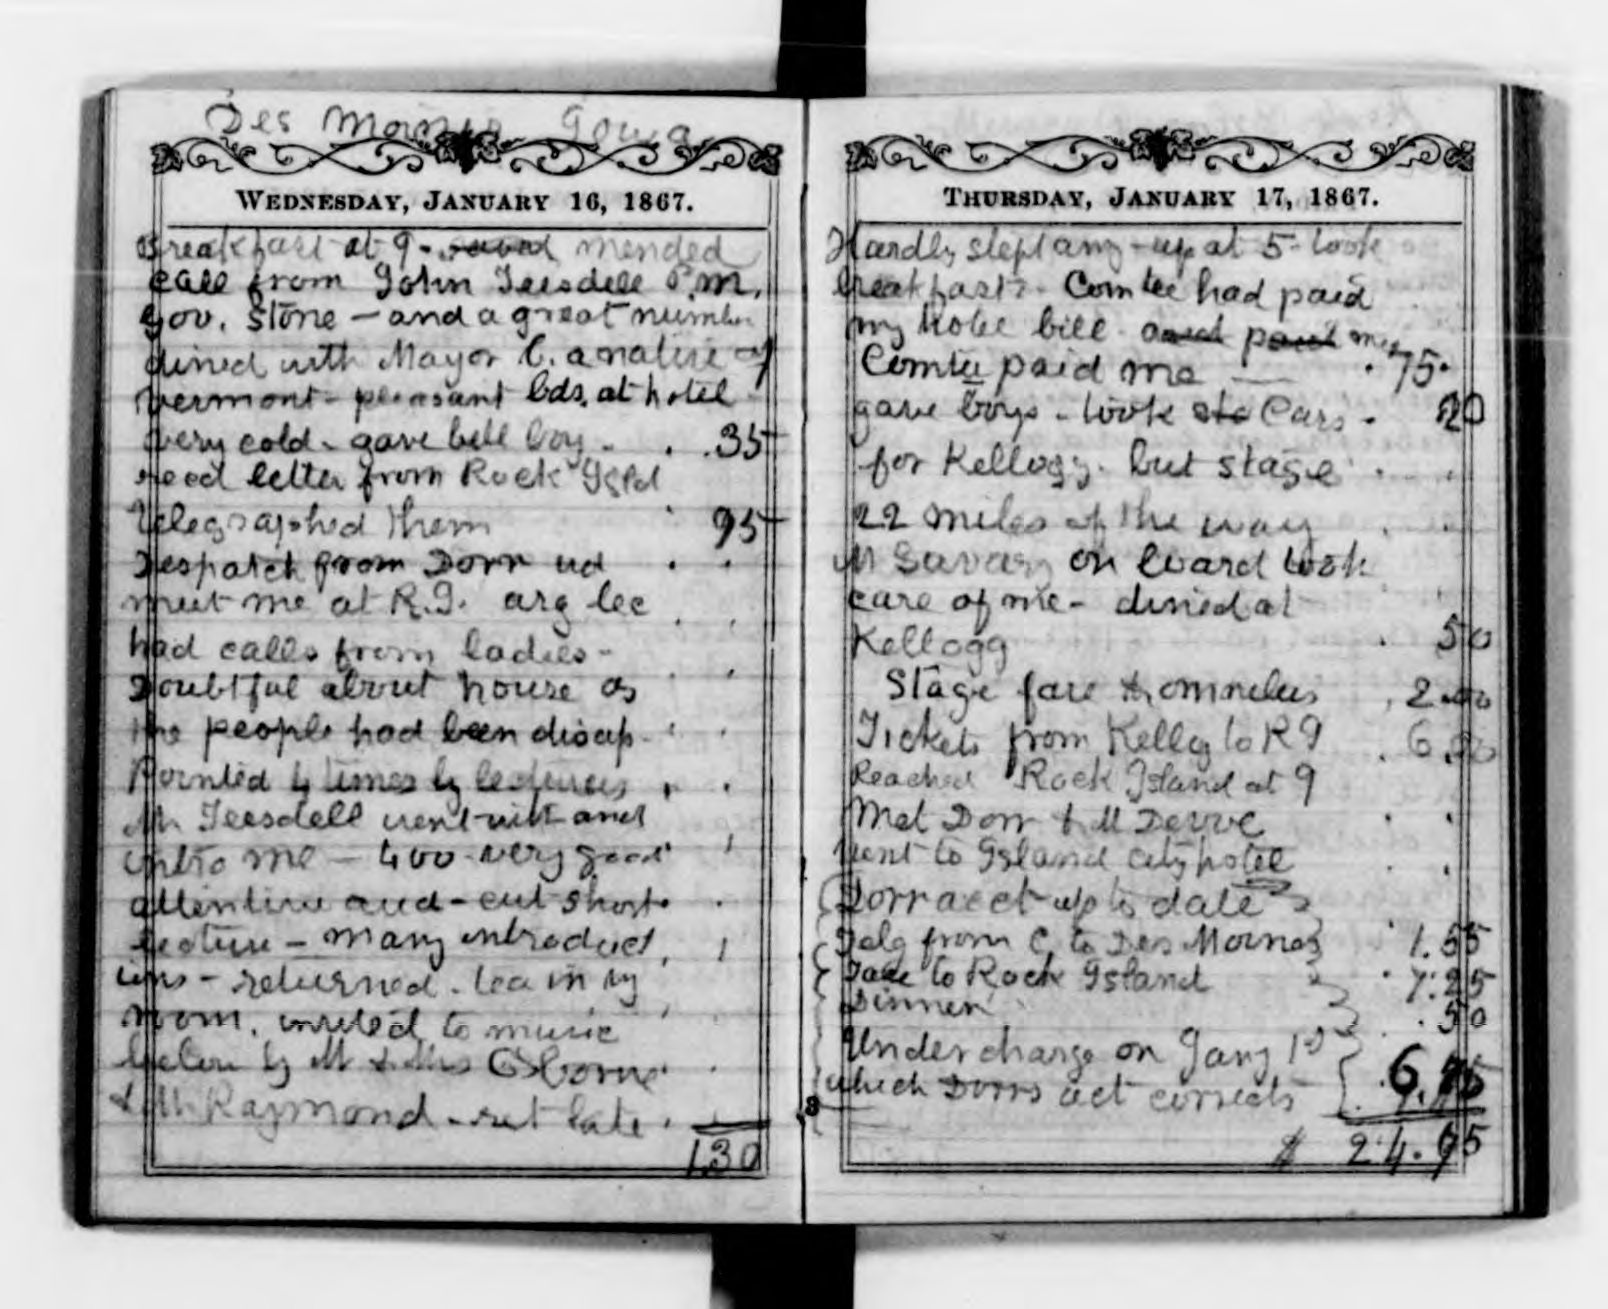 Des Moines Iowa
WEDNESDAY, JANUARY 16, 1867.
Breakfast at 9 - mended
call from John Teesdell P.M.
Gov. Stone - and a great number
dined with Mayor C. a native of
Vermont - pleasant bds. at hotel
very cold - gave bell boy . . .35
recd letter from Rock Isld
telegraphed them 95
Despatch from Dorr ud
meet me at R.I. arg lec
had calls from ladies -
Doubtful about house as
the people had been disap-
pointed 4 times by lecturers
Mr Teesdell went with and
intro me - 400 - very good
attention and - cut short
lecture - many introduct
ions - returned - tea in my
room. invited to music
below by Mr & Mrs Osborne
& Mr Raymond - ret late
1.30
THURSDAY, JANUARY 17, 1867.
Hardly slept any - up at 5 - took
breakfast - Comtee had paid
my hotel bill and paid me
Comtee paid me — . 75.
gave boys - took Cars - 20
for Kellogg. but stage
22 miles of the way
Mr Savery on board took
care of me - dined at
Kellogg . 50
Stage fare & omnibus . 2.00
Tickets from Kellog to R I . 6.
Reached Rock Island at 9
Met Dorr & M
went to Island city hotel
Dorr acct up to date
Telg from C. to Des Moines 1.55
Fare to Rock Island 7.25
Dinner . 50
Under charge on Jany 1st
which Dorrs act corrects 6.
$ 24.